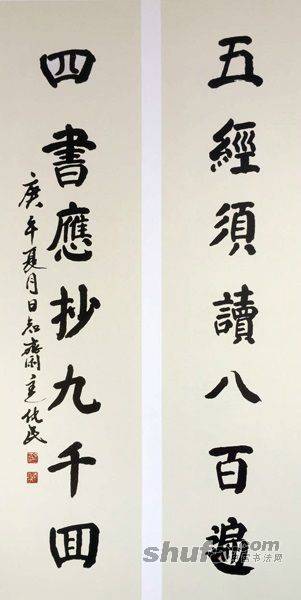 五經須讀八百遍
四書應抄九千回
庚午夏月日知齋主化民